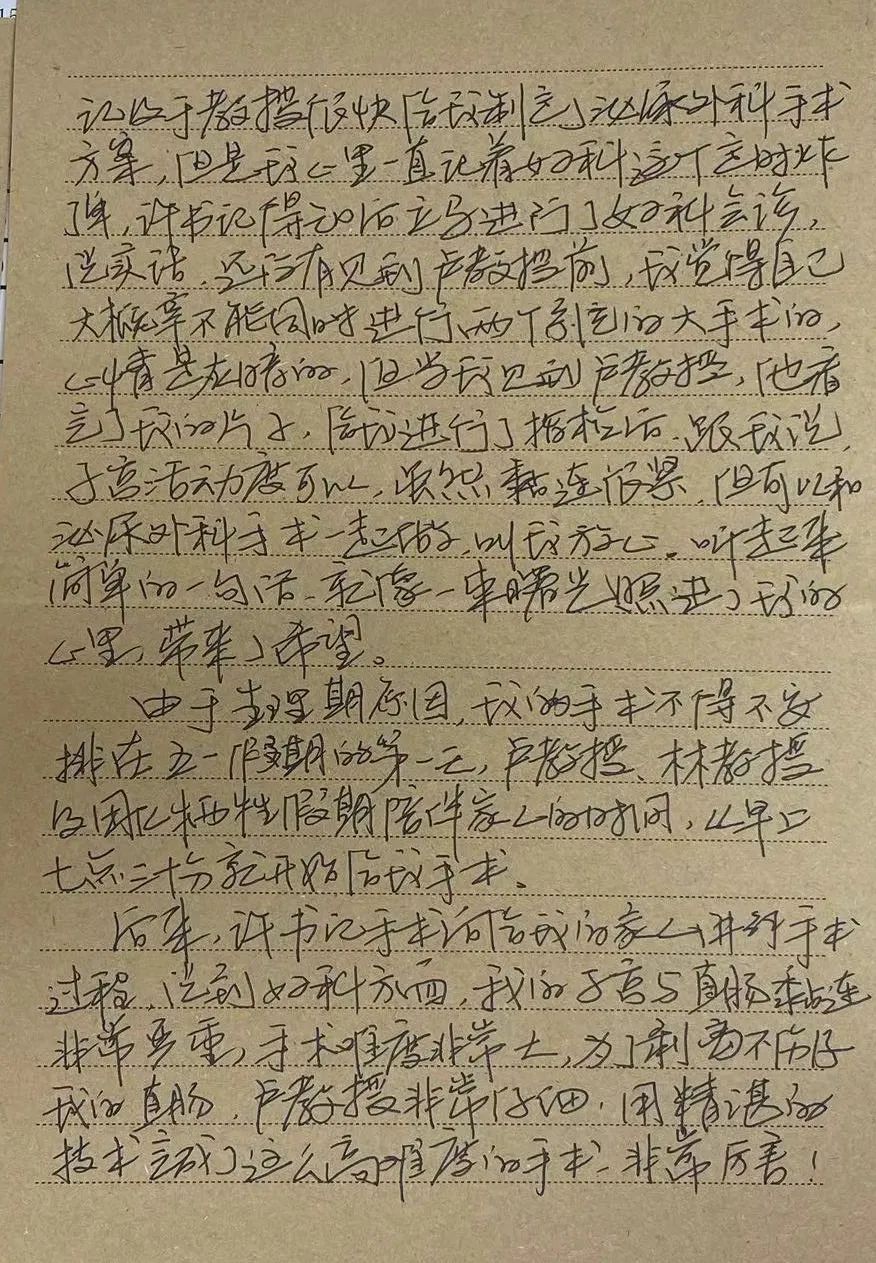 记及于教授很快给我制定了泌尿外科手术
方案,但是我心里一直记着妇科这个定时炸
弹,许书记得知后立马进行了妇科会诊,
说实话,还没有见到卢教授前,我觉得自己
大概率不能同时进行两个系统的大手术的,
心情是灰暗的,但当我见到卢教授,他看
完了我的片子,给我进行了指检后,跟我说,
子宫活动度可以,虽然黏连很紧,但可以和
泌尿外科手术一起做,叫我放心。听起来
简单的一句话,就像一束曙光照进了我的
心里,带来了希望。
由于生理期原因,我的手术不得不安
排在五一假期的第一天,卢教授、林教授
及团队牺牲假期陪伴家人的时间,从早上
七点三十分就开始给我手术。
后来,许书记手术后给我的家人讲解手术
过程,说到妇科方面,我的子宫与直肠黏连
非常严重,手术难度非常大,为了剥离不伤及
我的直肠,卢教授非常仔细,用精湛的
技术完成了这么高难度的手术,非常厉害!